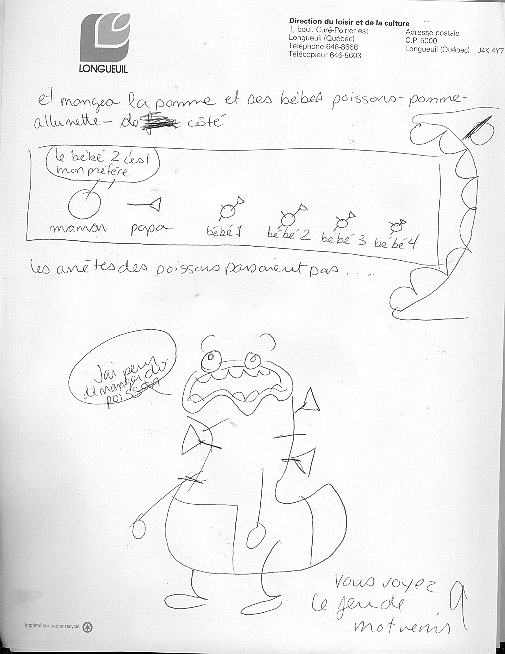 LONGUEUIL
Direction du loisir et de la culture
1, boul. Curé-Poirier est
Longueuil (Québec)
Téléphone 646-8666
Télécopieur 646-8603
Adresse postale
C.P. 5000
Longueuil (Québec) J4K 4Y7
et mangea la pomme et ses bébés poissons-pomme-
allumette- de côté
le bébé 2 c'est
mon préféré
maman papa bébé 1 bébé 2 bébé 3 bébé 4
les arrêtes des poissons passaient pas....
J'ai peur
de manger du
poisson
Vous voyez
le jeu de
mot venir ?
Imprimé sur papier recyclé